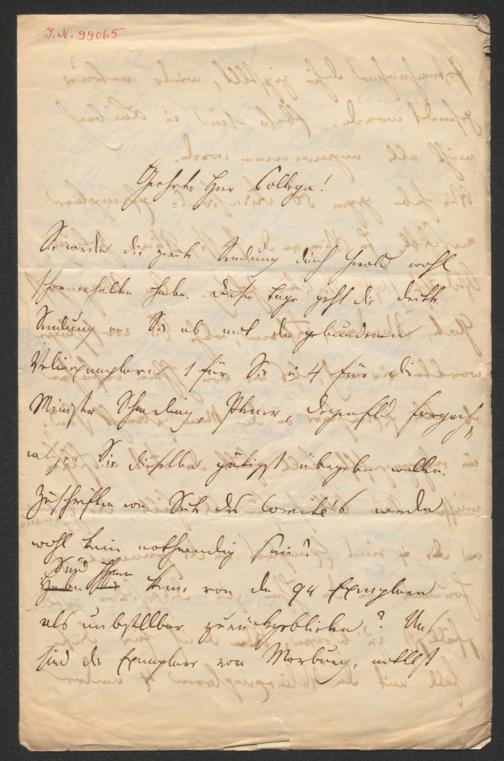 I.N. 99065
Geehrter Herr College!
Sie werden die zweite Sendung durch Gerold wohl
schon erhalten haben. Dieser Tage geht die dritte
Sendung an Sie ab mit den gebundenen
Velinexemplaren 1 für Sie u 4 für die
Minister Schmerling, Plener, Degenfeld, Forgach,
welchen Sie dieselben gütigst übergeben wollen.
Zuschriften von Seite des Comité's werden
wohl kein nothwendig sein?
Sind Ihnen
keine von den 94 Exemplaren
als unbestellbar zurückgeblieben? Uns
sind die Exemplare von Marburg,